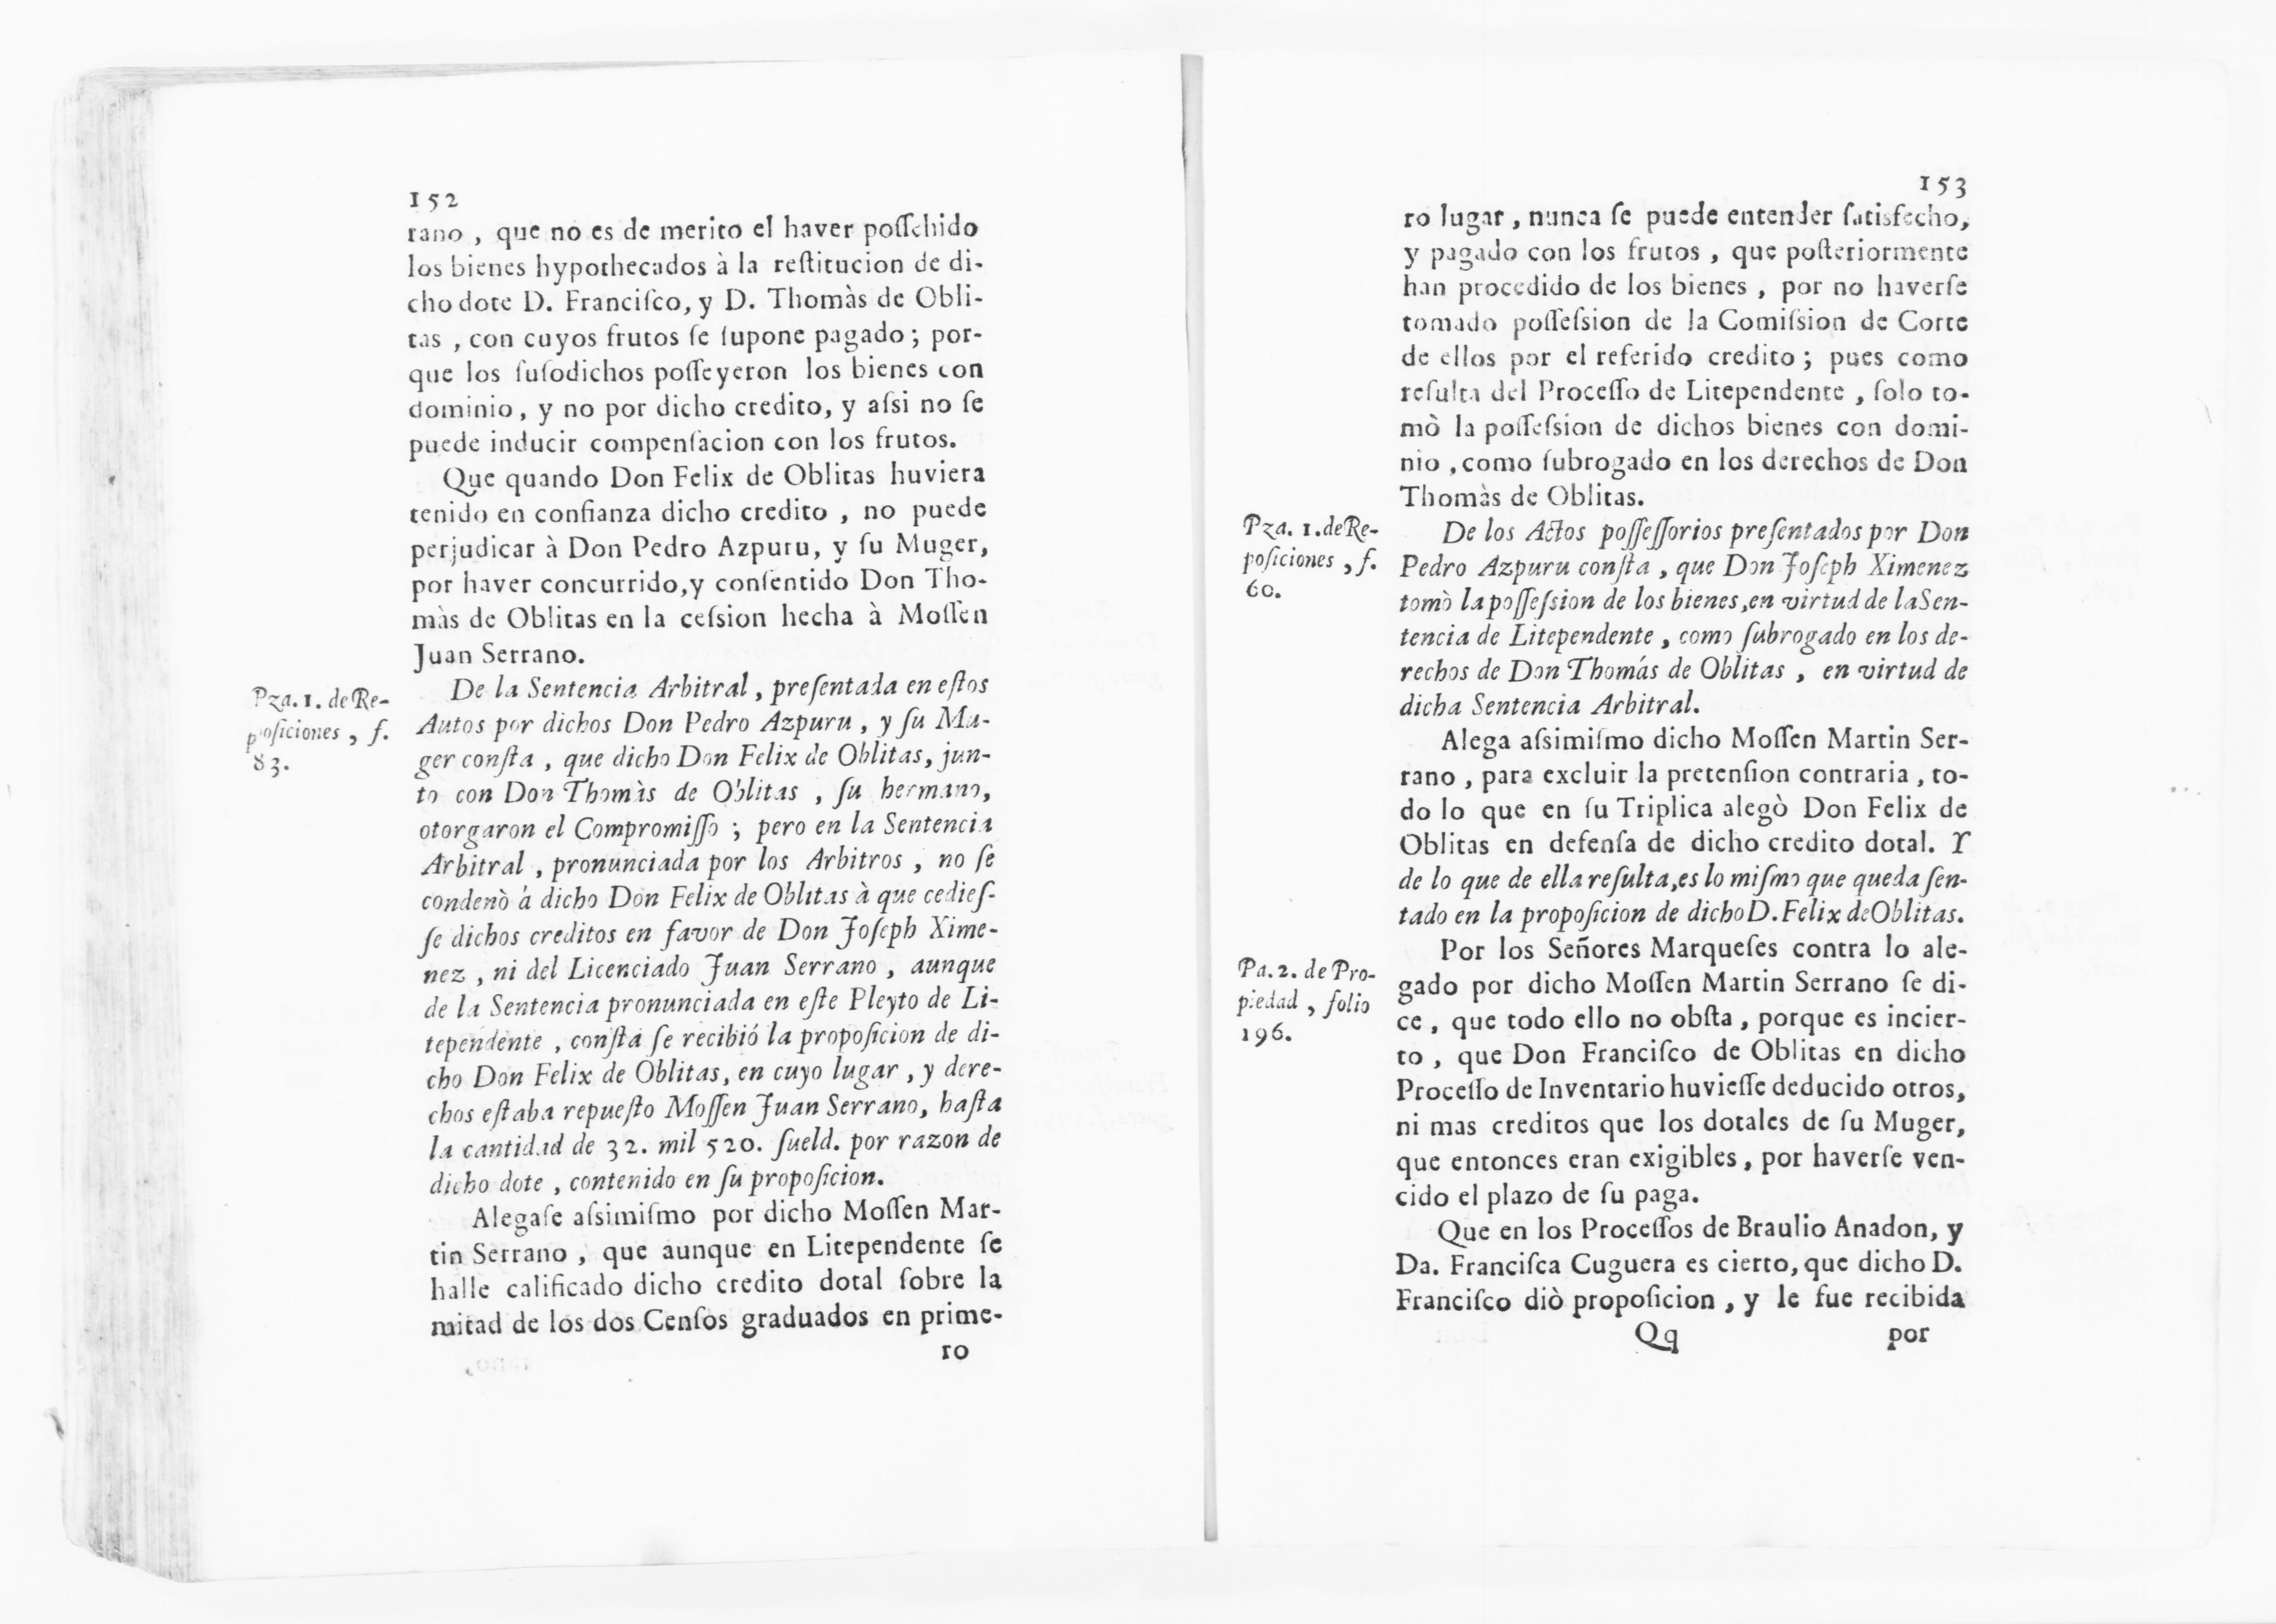 152
rano , que no es de merito el haver poſſehido
los bienes hypothecados à la reſtitucion de di-
cho dote D. Franciſco, y D. Thomàs de Obli-
tas , con cuyos frutos ſe ſupone pagado ; por-
que los ſuſodichos poſſeyeron los bienes con
dominio, y no por dicho credito, y aſsi no ſe
puede inducir compenſacion con los frutos.
Que quando Don Felix de Oblitas huviera
tenido en confianza dicho credito , no puede
perjudicar à Don Pedro Azpuru, y ſu Muger,
por haver concurrido, y conſentido Don Tho-
màs de Oblitas en la ceſsion hecha à Moſſen
Juan Serrano.
Pza. 1. de Re-
poſiciones , f.
83.
De la Sentencia Arbitral , preſentada en eſtos
Autos por dichos Don Pedro Azpuru , y ſu Mu-
ger conſta , que dicho Don Felix de Oblitas, jun-
to con Don Thomàs de Oblitas , ſu hermano,
otorgaron el Compromiſſo ; pero en la Sentencia
Arbitral , pronunciada por los Arbitros , no ſe
condenò à dicho Don Felix de Oblitas à que cedieſ-
ſe dichos creditos en favor de Don Joſeph Xime-
nez , ni del Licenciado Juan Serrano , aunque
de la Sentencia pronunciada en eſte Pleyto de Li-
tependente , conſta ſe recibió la propoſicion de di-
cho Don Felix de Oblitas, en cuyo lugar , y dere-
chos eſtaba repueſto Moſſen Juan Serrano, haſta
la cantidad de 32. mil 520. ſueld. por razon de
dicho dote , contenido en ſu propoſicion.
Alegaſe aſsimiſmo por dicho Moſſen Mar-
tin Serrano , que aunque en Litependente ſe
halle calificado dicho credito dotal ſobre la
mitad de los dos Cenſos graduados en prime-
ro
153
ro lugar , nunca ſe puede entender ſatisfecho,
y pagado con los frutos , que poſteriormente
han procedido de los bienes , por no haverſe
tomado poſſeſsion de la Comiſsion de Corte
de ellos por el referido credito ; pues como
reſulta del Proceſſo de Litependente , ſolo to-
mò la poſſeſsion de dichos bienes con domi-
nio , como ſubrogado en los derechos de Don
Thomàs de Oblitas.
Pza. 1. de Re-
poſiciones , f.
60.
De los Actos poſſeſſorios preſentados por Don
Pedro Azpuru conſta , que Don Joſeph Ximenez
tomò la poſſeſsion de los bienes, en virtud de la Sen-
tencia de Litependente , como ſubrogado en los de-
rechos de Don Thomás de Oblitas , en virtud de
dicha Sentencia Arbitral.
Alega aſsimiſmo dicho Moſſen Martin Ser-
rano , para excluir la pretenſion contraria , to-
do lo que en ſu Triplica alegò Don Felix de
Oblitas en defenſa de dicho credito dotal. Y
de lo que de ella reſulta, es lo miſmo que queda ſen-
tado en la propoſicion de dicho D. Felix de Oblitas.
Pa. 2. de Pro-
piedad , folio
196.
Por los Señores Marqueſes contra lo ale-
gado por dicho Moſſen Martin Serrano ſe di-
ce , que todo ello no obſta , porque es incier-
to , que Don Franciſco de Oblitas en dicho
Proceſſo de Inventario huvieſſe deducido otros,
ni mas creditos que los dotales de ſu Muger,
que entonces eran exigibles , por haverſe ven-
cido el plazo de ſu paga.
Que en los Proceſſos de Braulio Anadon, y
Da. Franciſca Cuguera es cierto, que dicho D.
Franciſco diò propoſicion , y le fue recibida
Qq por